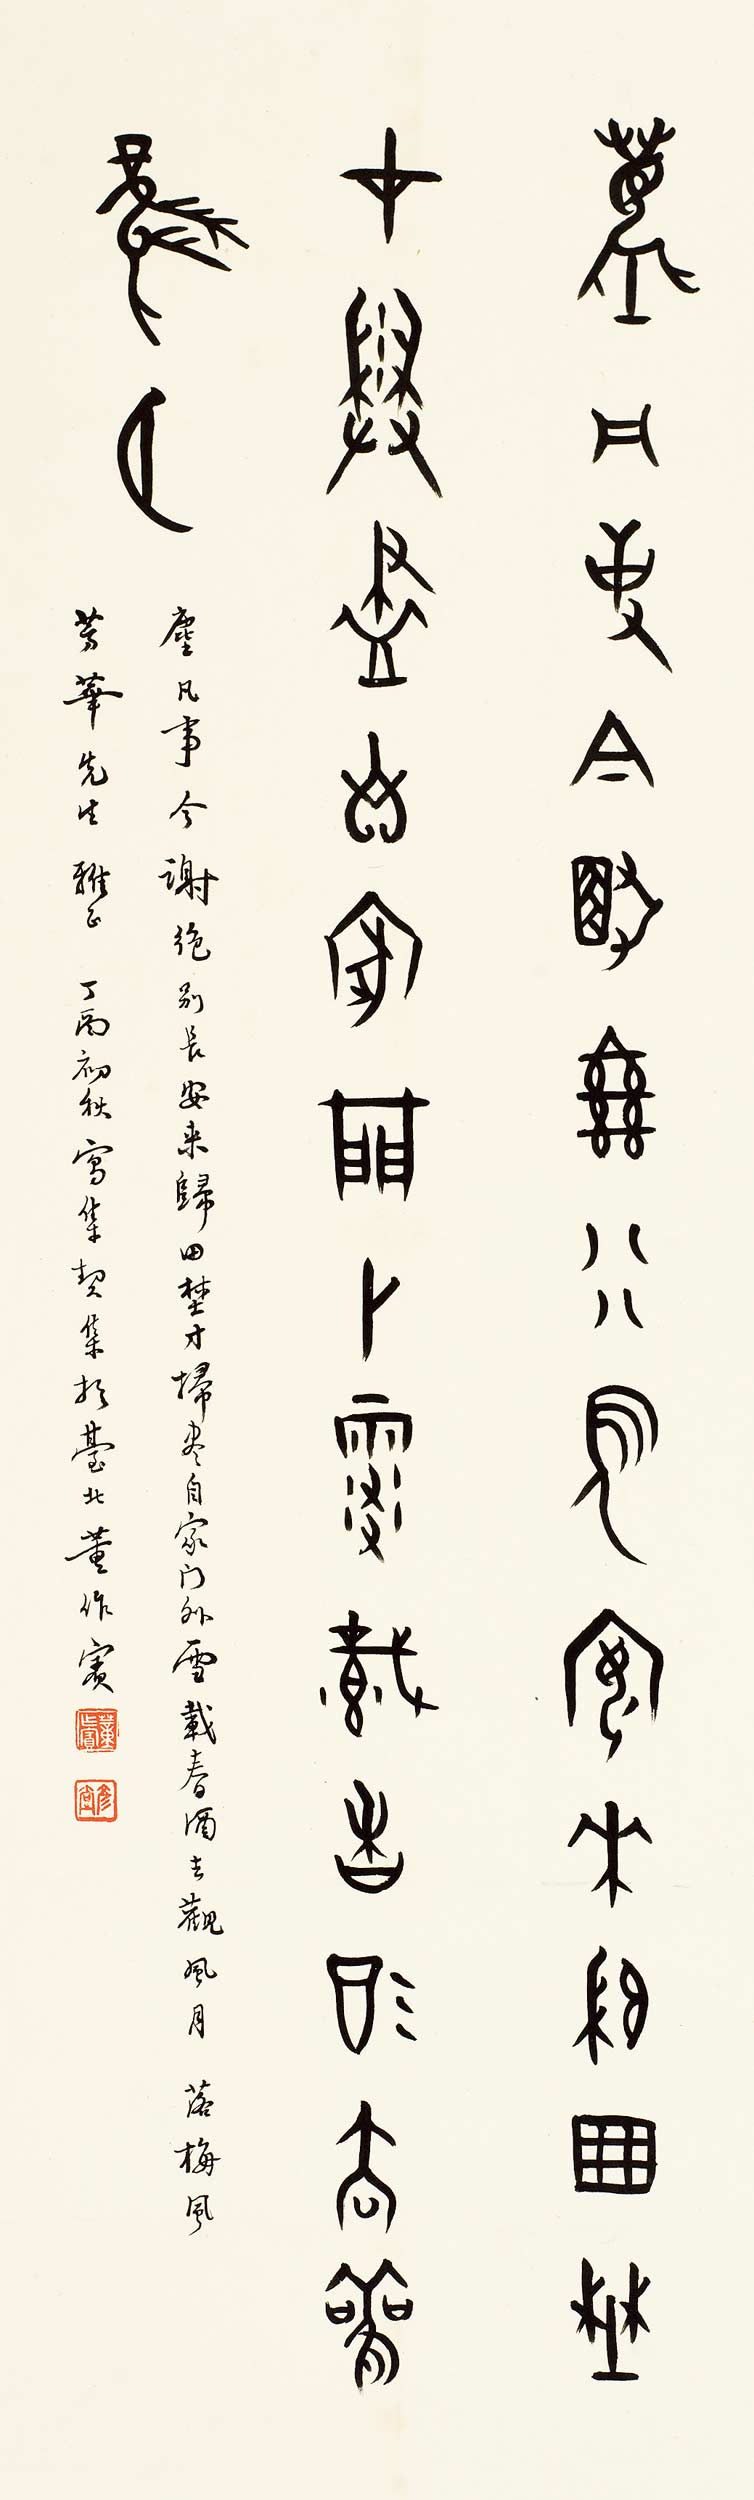 塵凡事今謝絕別長安來歸田埜
才掃盡自家門外雪載春酒去觀
風月
塵凡事今謝絕別長安来歸田埜才掃盡自家门外雪載春酒去觀風月 落梅風
華先生雅正 丁酉初秋寫集契集於臺北董作賓
董作賓
彥堂